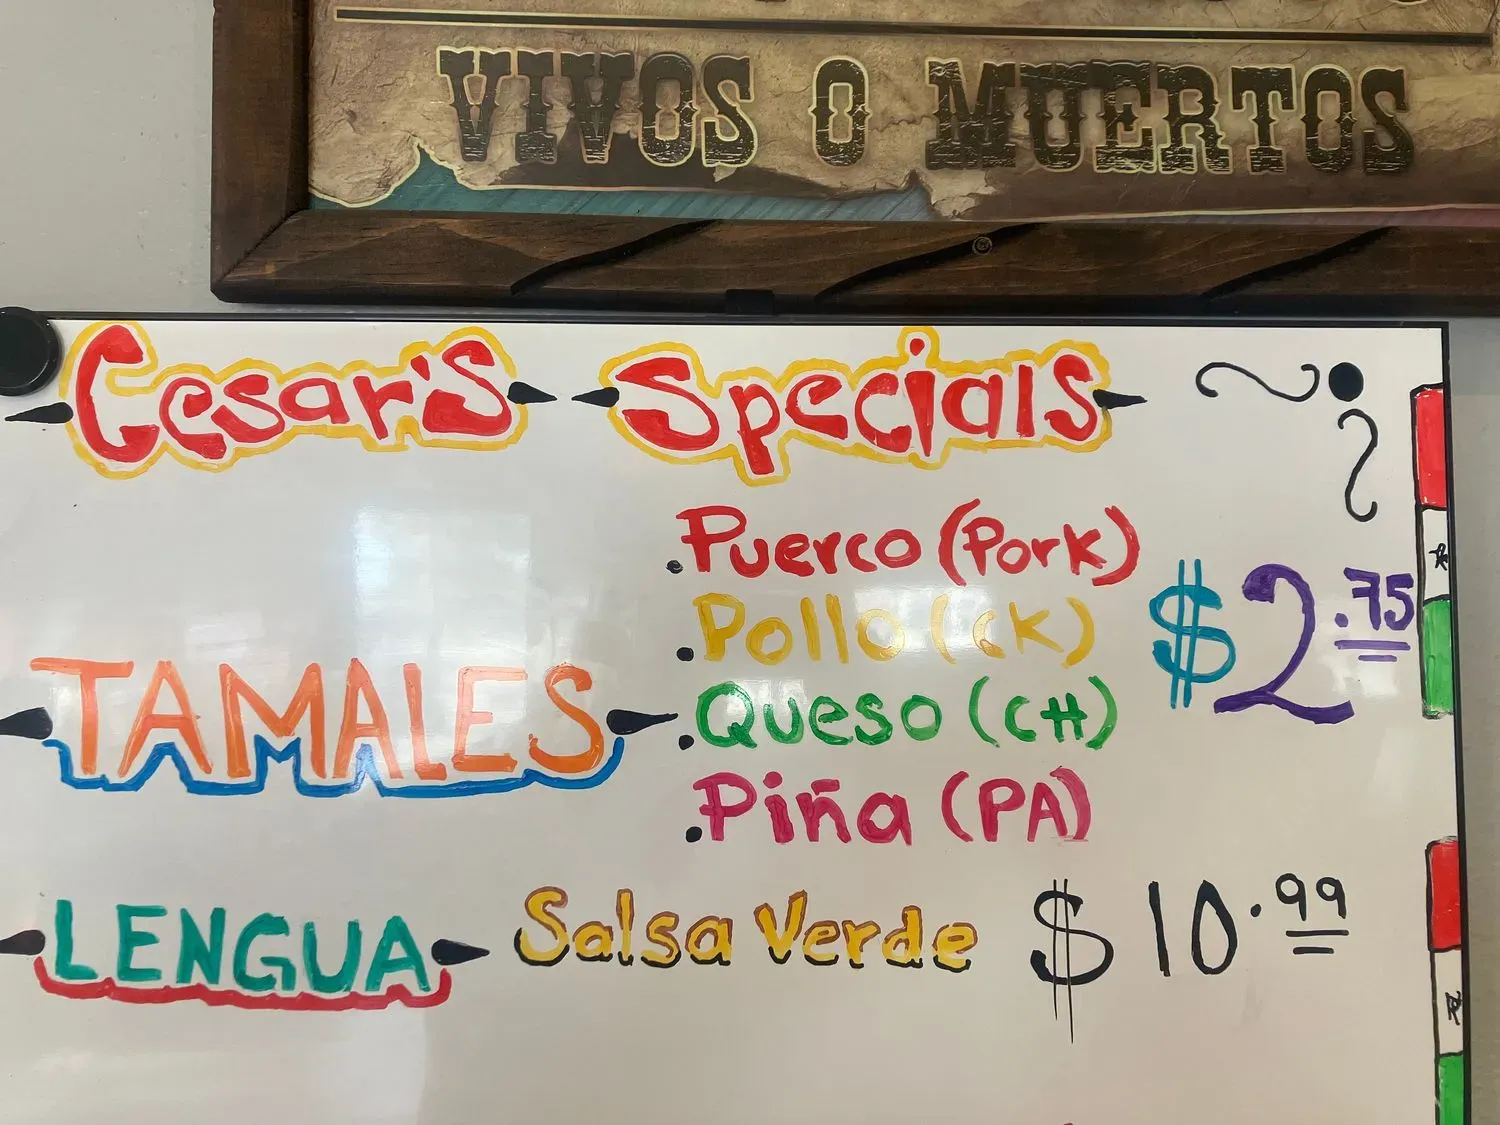 VIVOS O MUERTOS
Cesar's Specials
TAMALES
.Puerco (Pork)
.Pollo (CK)
.Queso (CH)
.Piña (PA)
$2.75
LENGUA Salsa Verde $10.99